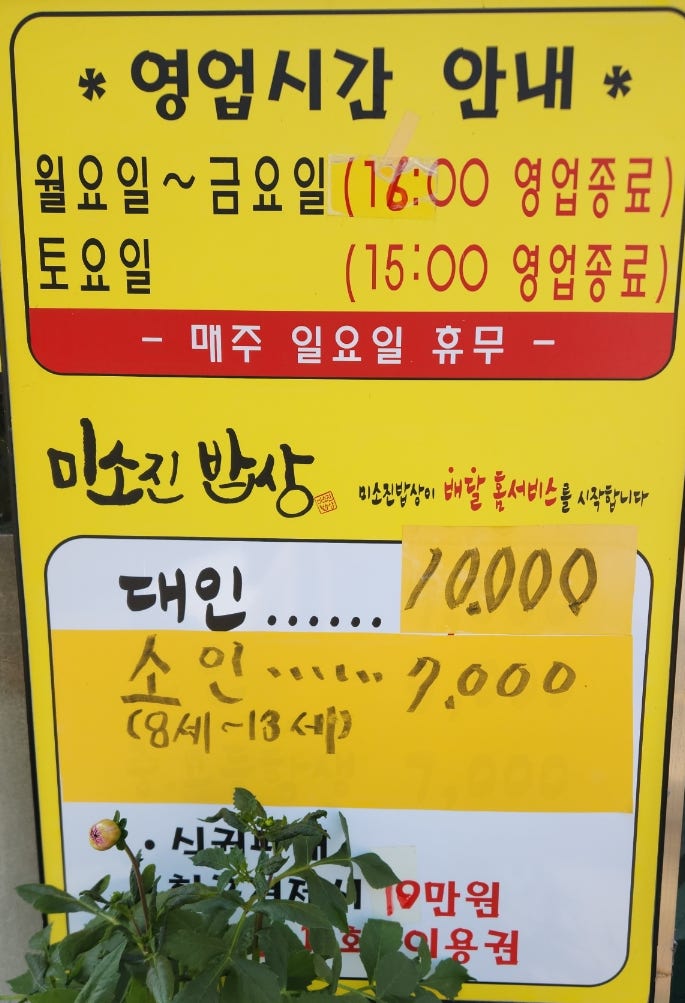 * 영업시간 안내 *
월요일~금요일 (16:00 영업종료)
토요일 (15:00 영업종료)
- 매주 일요일 휴무 -
미소진 밥상
미소진밥상이 배달 홈서비스를 시작합니다
대인 ...... 10.000
소인 ....... 7.000
(8세~13세)
7,000
19만원
이용권